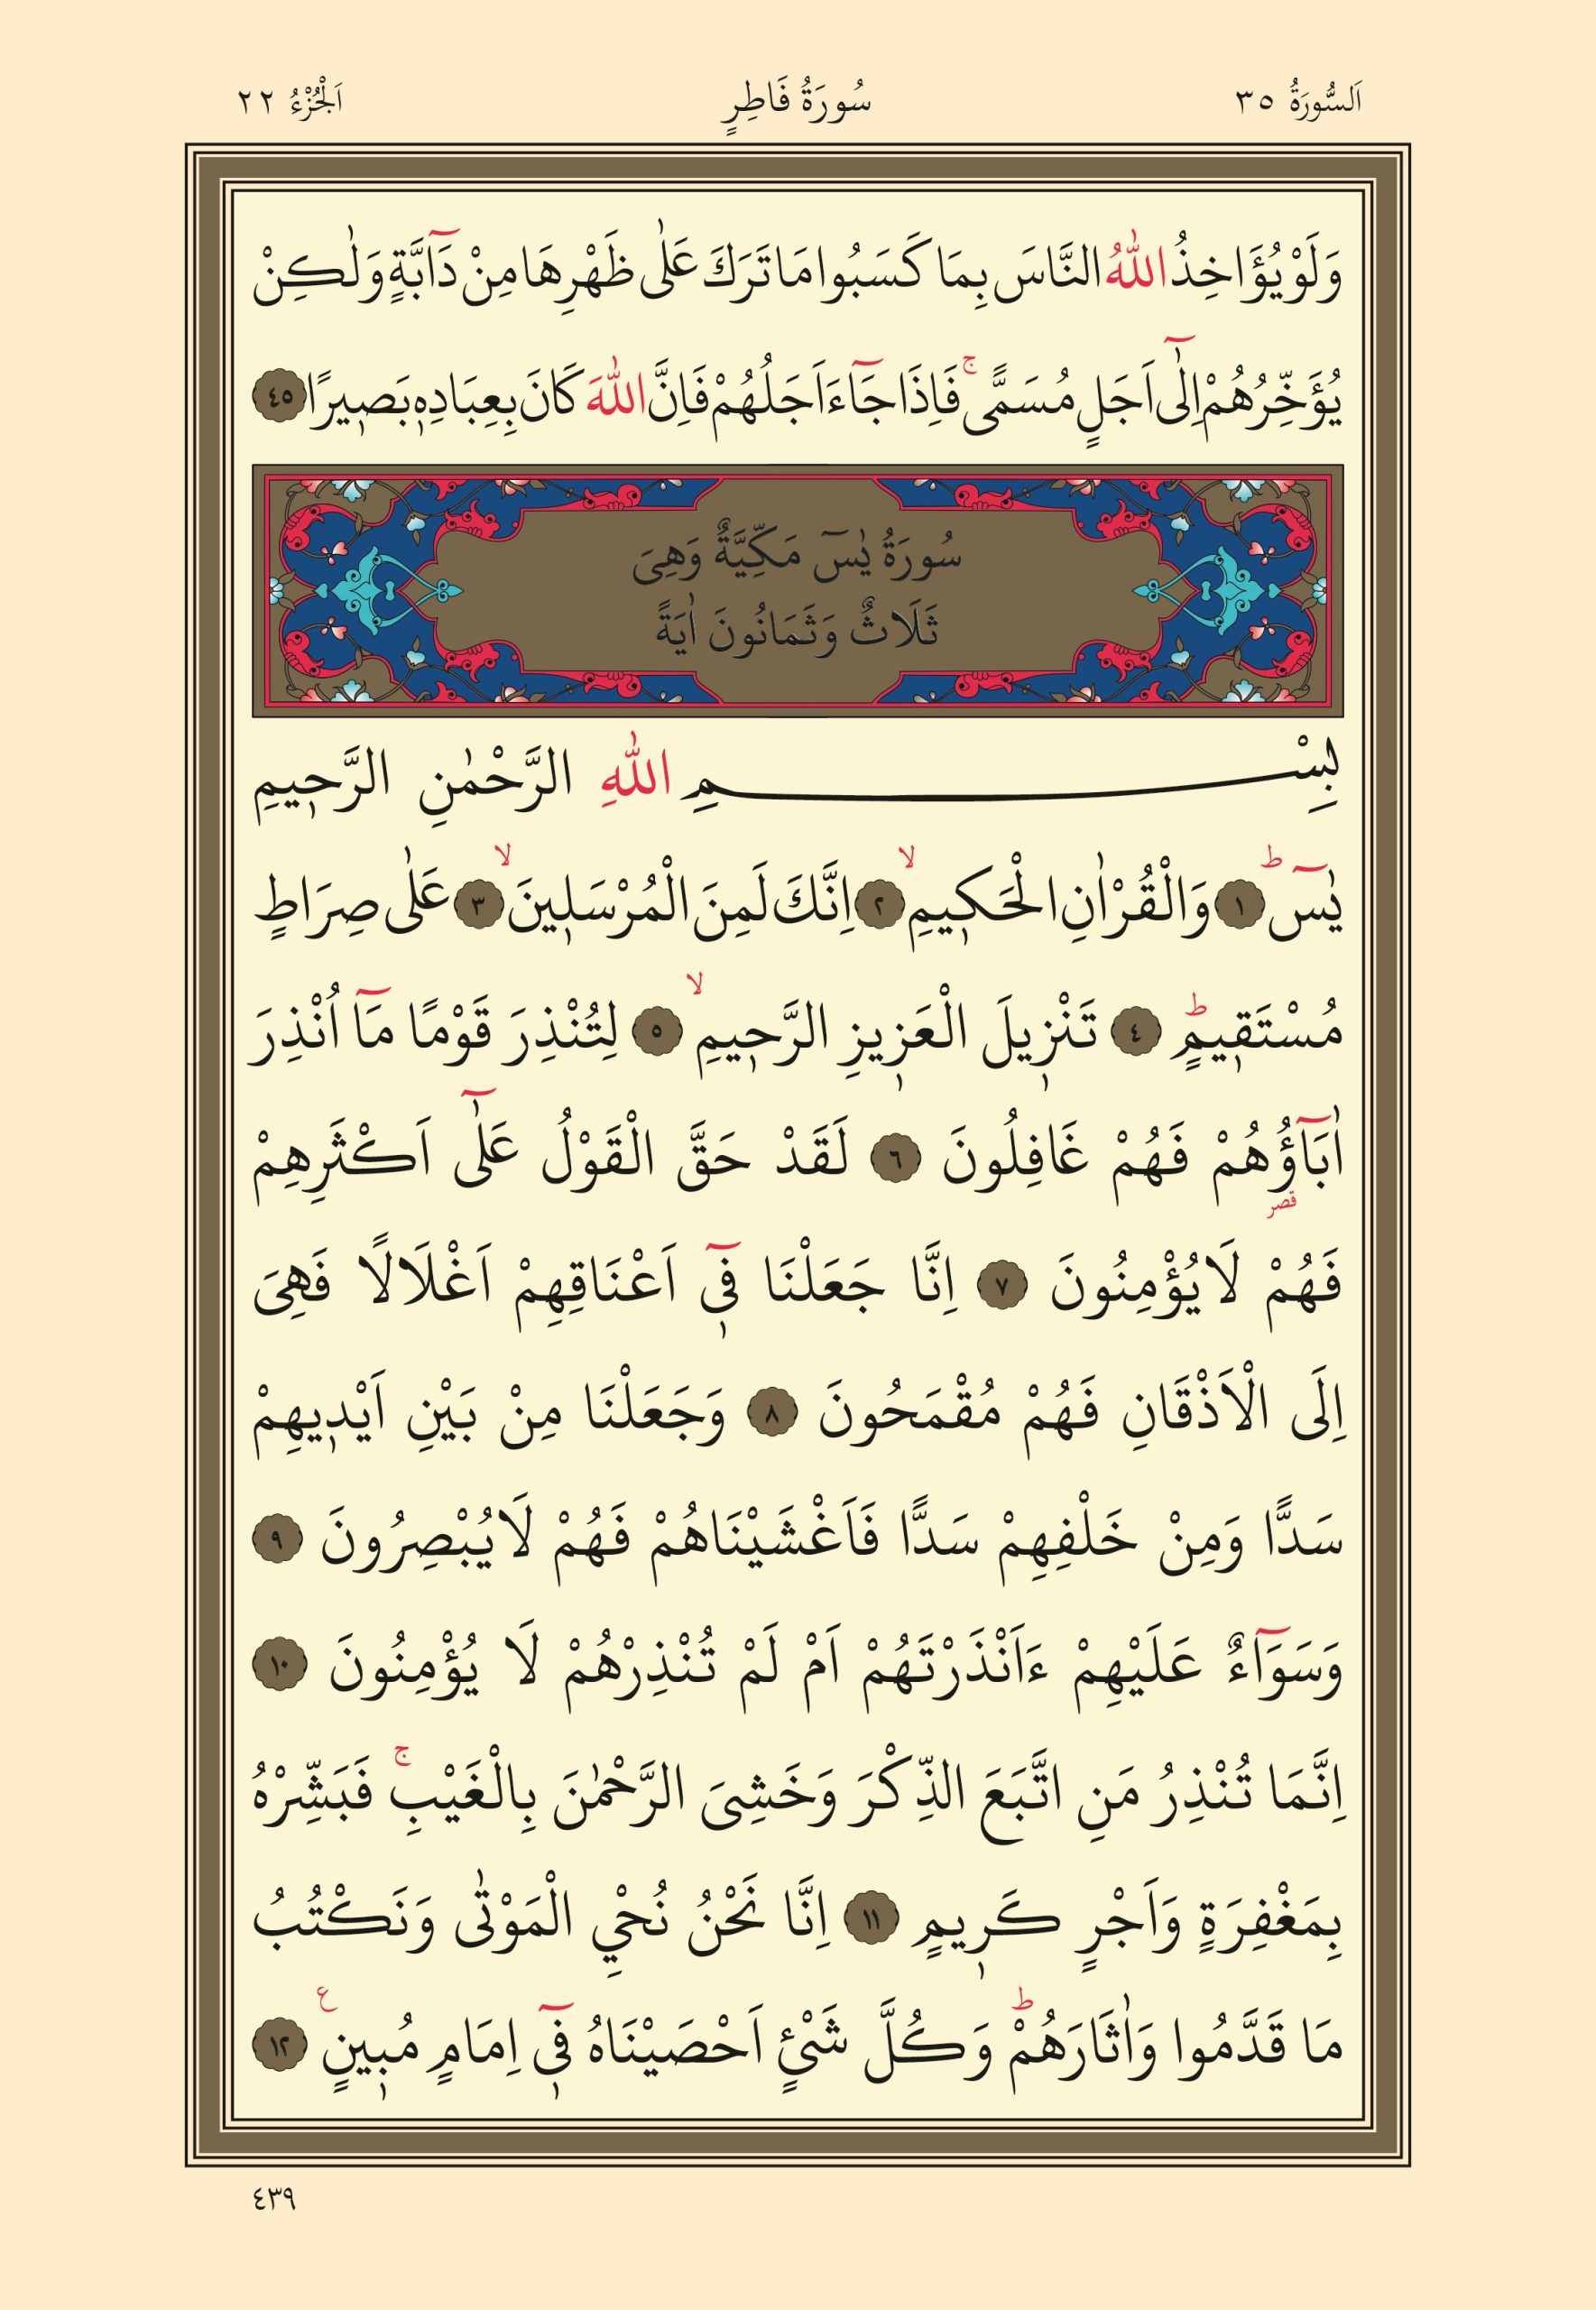 اَلسُّورَةُ ٣٥ سُورَةُ فَاطِرٍ اَلْجُزْءُ ٢٢
وَلَوْ يُؤَاخِذُ اللّٰهُ النَّاسَ بِمَا كَسَبُوا مَا تَرَكَ عَلٰى ظَهْرِهَا مِنْ دَٓابَّةٍ وَلٰكِنْ
يُؤَخِّرُهُمْ اِلٰٓى اَجَلٍ مُسَمًّىۚ فَاِذَا جَٓاءَ اَجَلُهُمْ فَاِنَّ اللّٰهَ كَانَ بِعِبَادِه۪ بَص۪يرًا ٤٥
سُورَةُ يٰسٓ مَكِّيَّةٌ وَهِىَ
ثَلَاثٌ وَثَمَانُونَ اٰيَةً
بِسْمِ اللّٰهِ الرَّحْمٰنِ الرَّح۪يمِ
يٰسٓۜ ١ وَالْقُرْاٰنِ الْحَك۪يمِۙ ٢ اِنَّكَ لَمِنَ الْمُرْسَل۪ينَۙ ٣ عَلٰى صِرَاطٍ
مُسْتَق۪يمٍۜ ٤ تَنْز۪يلَ الْعَز۪يزِ الرَّح۪يمِۙ ٥ لِتُنْذِرَ قَوْمًا مَٓا اُنْذِرَ
اٰبَٓاؤُ۬هُمْ فَهُمْ غَافِلُونَ ٦ لَقَدْ حَقَّ الْقَوْلُ عَلٰٓى اَكْثَرِهِمْ
قصر
فَهُمْ لَا يُؤْمِنُونَ ٧ اِنَّا جَعَلْنَا ف۪ٓى اَعْنَاقِهِمْ اَغْلَالًا فَهِىَ
اِلَى الْاَذْقَانِ فَهُمْ مُقْمَحُونَ ٨ وَجَعَلْنَا مِنْ بَيْنِ اَيْد۪يهِمْ
سَدًّا وَمِنْ خَلْفِهِمْ سَدًّا فَاَغْشَيْنَاهُمْ فَهُمْ لَا يُبْصِرُونَ ٩
وَسَوَٓاءٌ عَلَيْهِمْ ءَاَنْذَرْتَهُمْ اَمْ لَمْ تُنْذِرْهُمْ لَا يُؤْمِنُونَ ١٠
اِنَّمَا تُنْذِرُ مَنِ اتَّبَعَ الذِّكْرَ وَخَشِىَ الرَّحْمٰنَ بِالْغَيْبِۚ فَبَشِّرْهُ
بِمَغْفِرَةٍ وَاَجْرٍ كَر۪يمٍ ١١ اِنَّا نَحْنُ نُحْيِ الْمَوْتٰى وَنَكْتُبُ
مَا قَدَّمُوا وَاٰثَارَهُمْۜ وَكُلَّ شَيْئٍ اَحْصَيْنَاهُ ف۪ٓى اِمَامٍ مُب۪ينٍ ع ١٢
٤٣٩